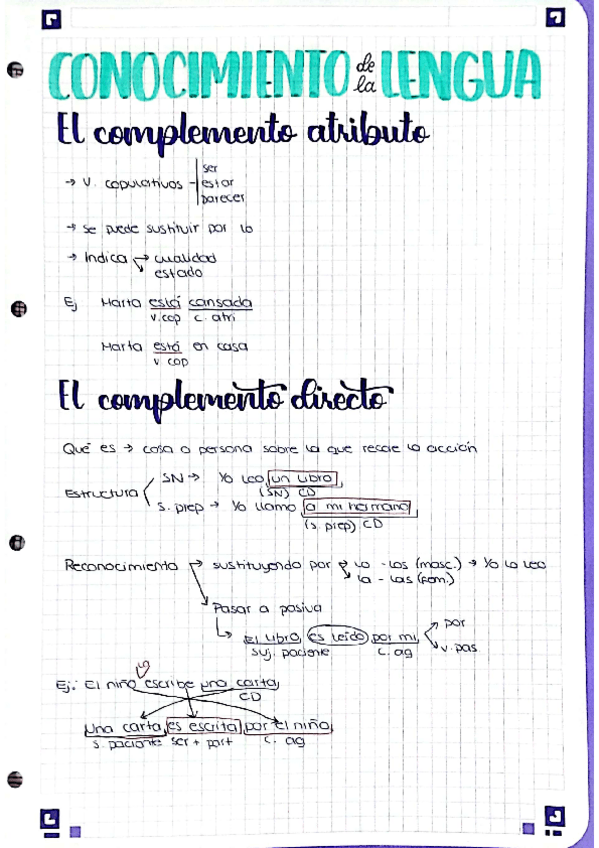 CONOCIMIENTO de la LENGUA
El complemento atributo
→ V. copulativos - ser
estar
parecer
→ se puede sustituir por lo
→ Indica → cualidad
estado
Ej Marta está cansada
v.cop c. atri
Marta está en casa
v cop
El complemento directo
Qué es → cosa o persona sobre la que recae la acción
Estructura
SN → Yo leo un libro
(SN) CD
S. prep → Yo llamo a mi hermano
(s. prep) CD
Reconocimiento → sustituyendo por → lo - los (masc.) → Yo lo leo
la - las (fem.)
Pasar a pasiva
El libro es leído por mi
suj. paciente c. ag
por
v. pas
Ej: El niño escribe una carta
CD
Una carta es escrita por el niño
s. paciente ser + part c. ag